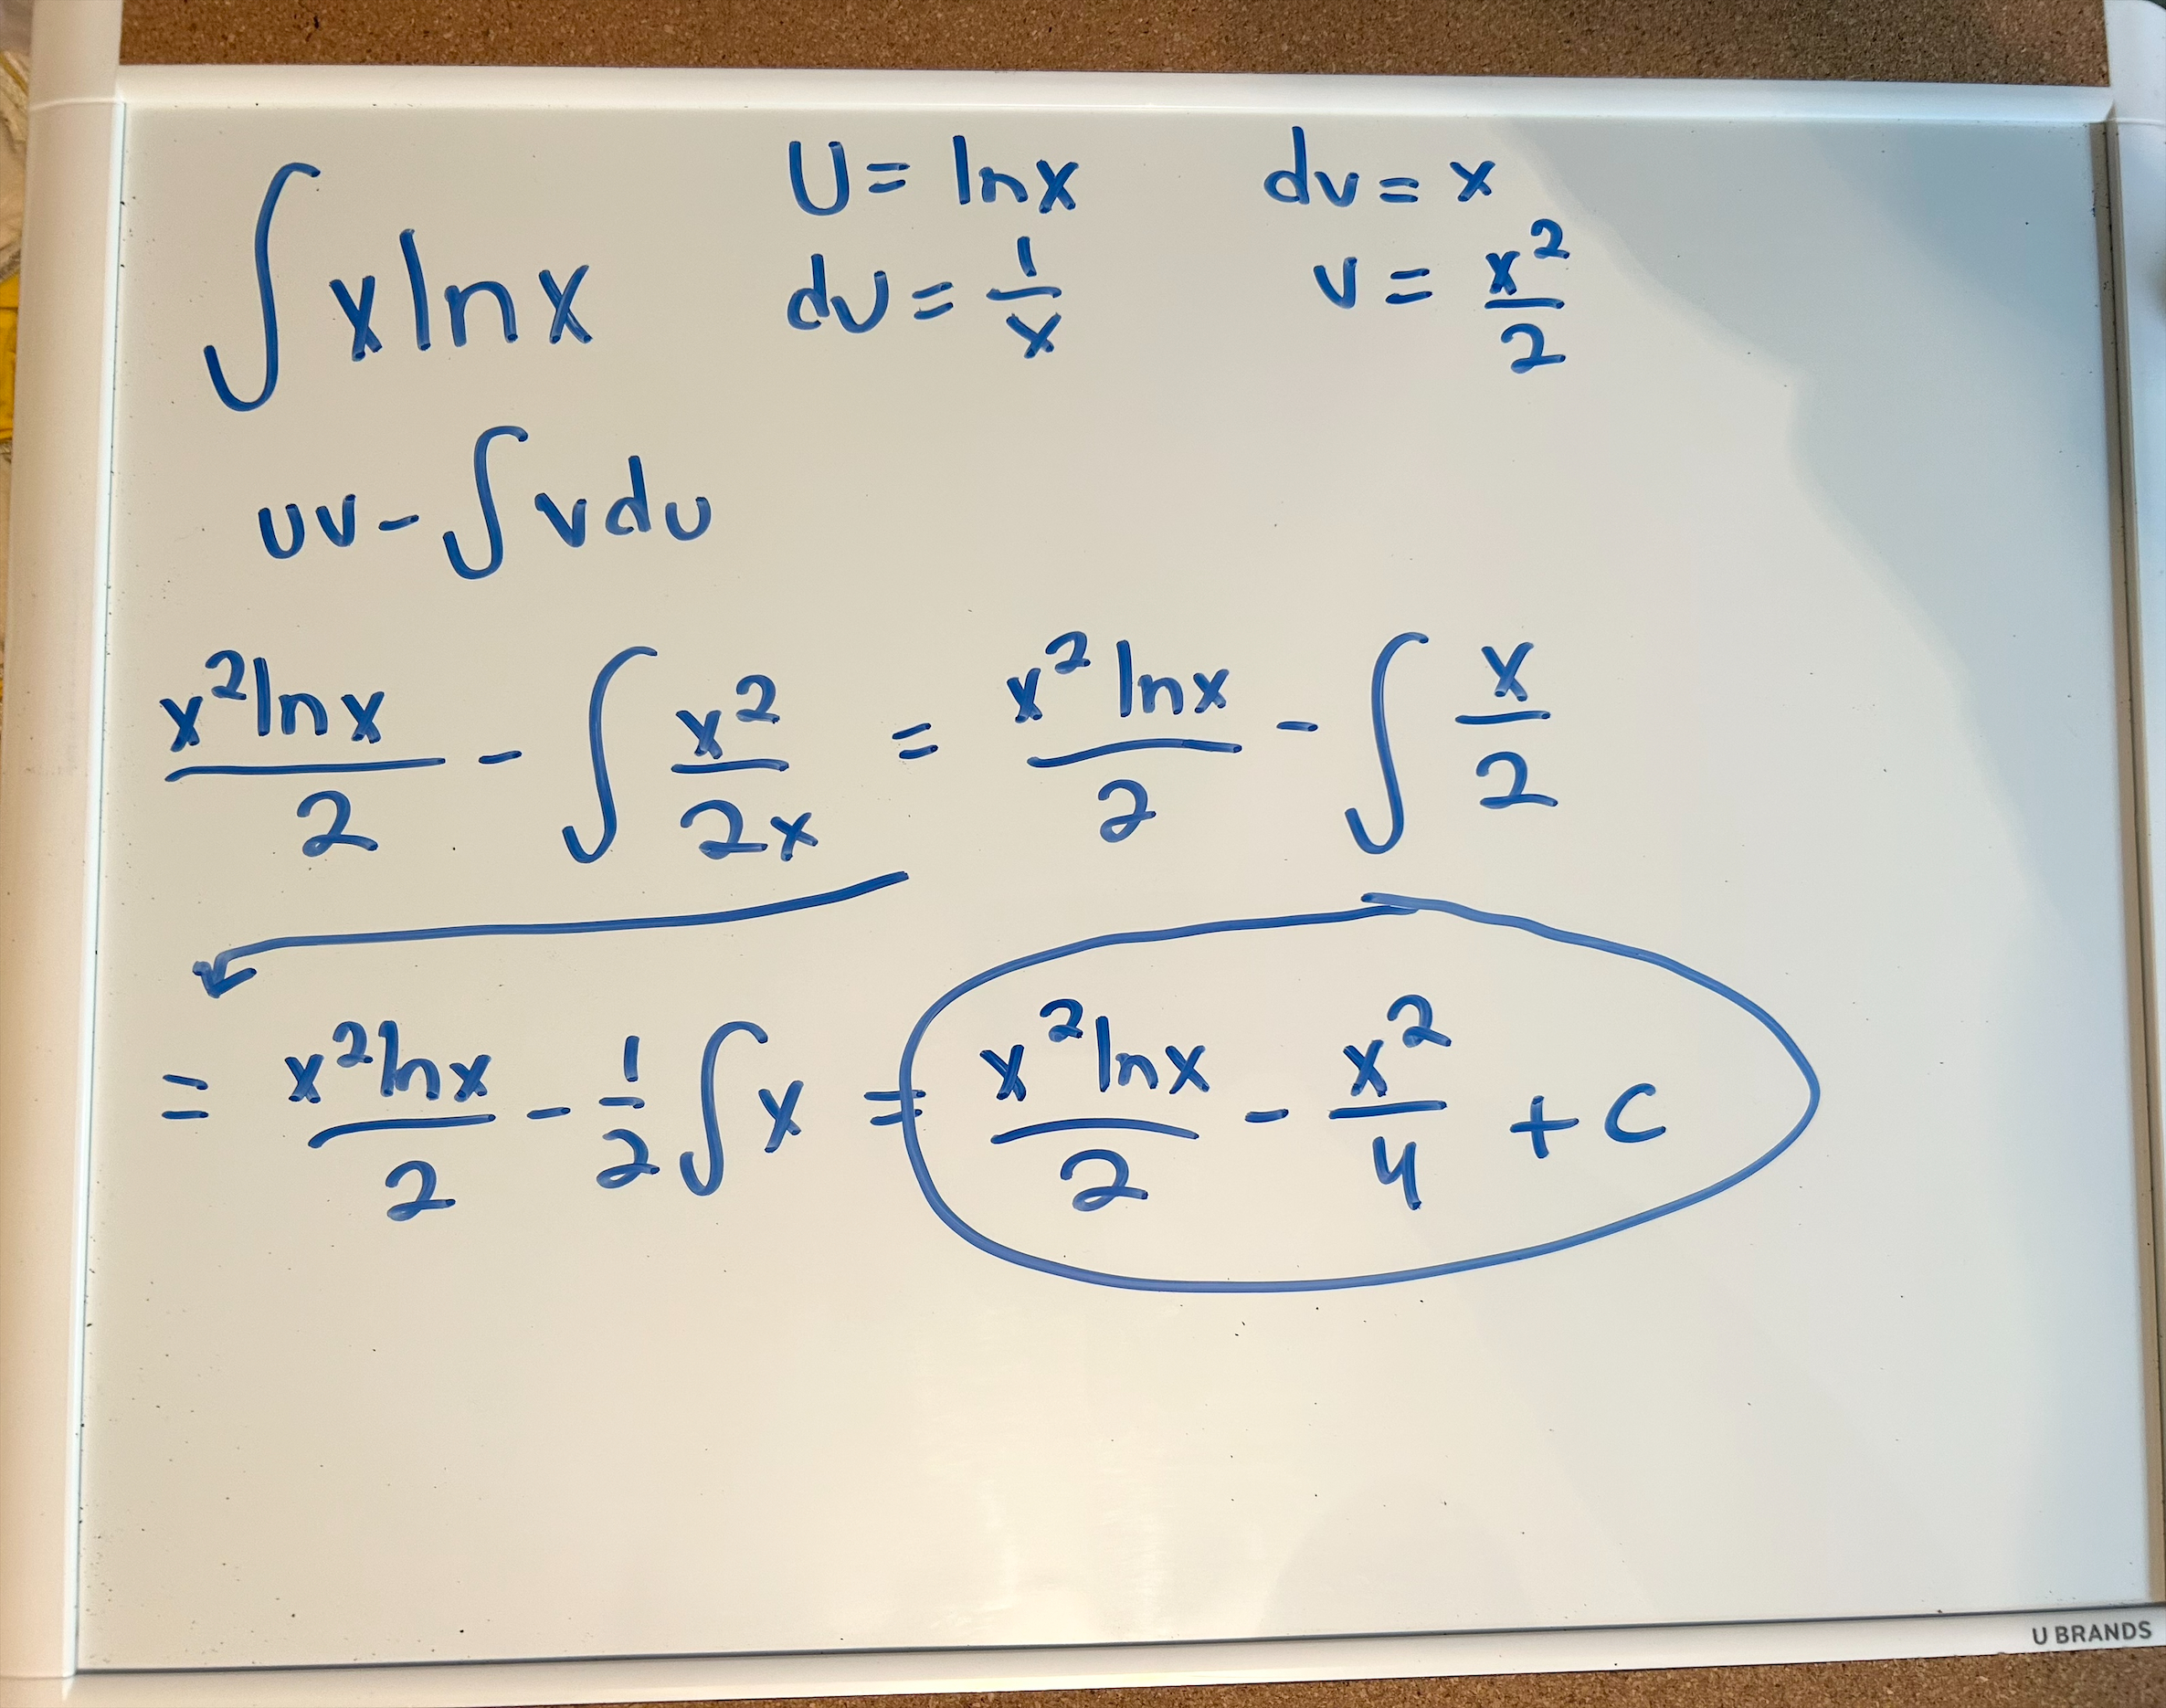 ∫ x ln x   U = ln x   dv = x
du = 1/x   v = x²/2
uv - ∫ v du
x² ln x / 2 - ∫ x²/2x = x² ln x / 2 - ∫ x/2
= x² ln x / 2 - 1/2 ∫ x = x² ln x / 2 - x²/4 + C
U BRANDS